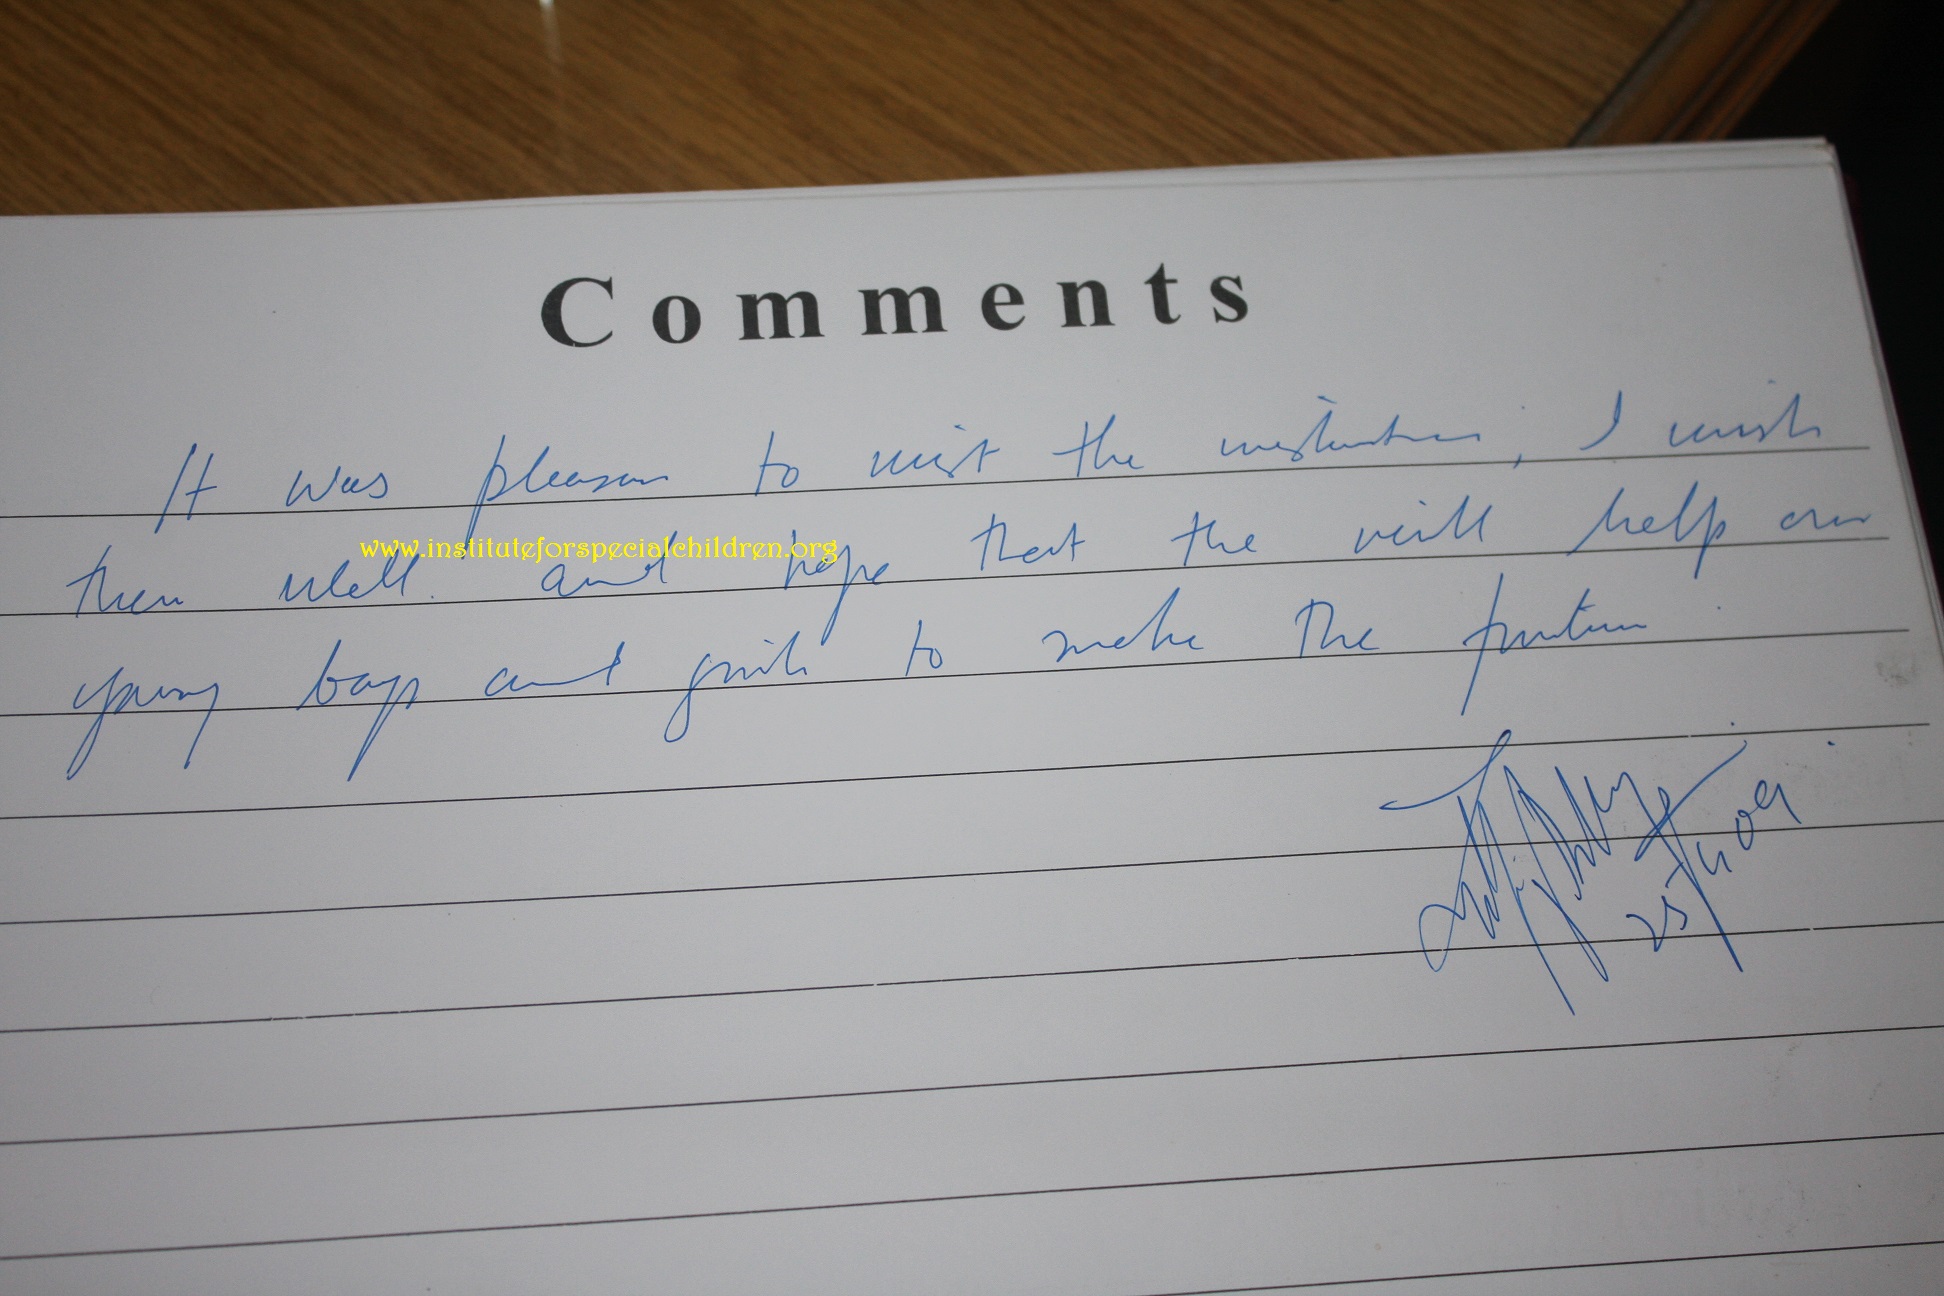 Comments
It was pleasure to visit the institution, I wish
them well. and hope that the will help our
www.instituteforspecialchildren.org
young boys and girls to make the future.
25/4/09